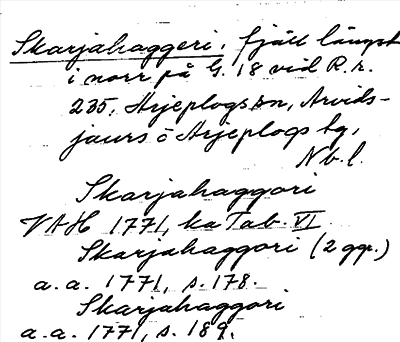 Skarjahaggeri, fjäll längst
i norr på G. 18 vid R.r.
235, Arjeplogs sn, Arvids-
jaurs o Arjeplogs tg,
Nb. l.
Skarjahaggori
VAH 1771, ka Tab. VI.
Skarjahaggori (2 ggr.)
a.a. 1771, s. 178.
Skarjahaggori
a.a. 1771, s. 189.